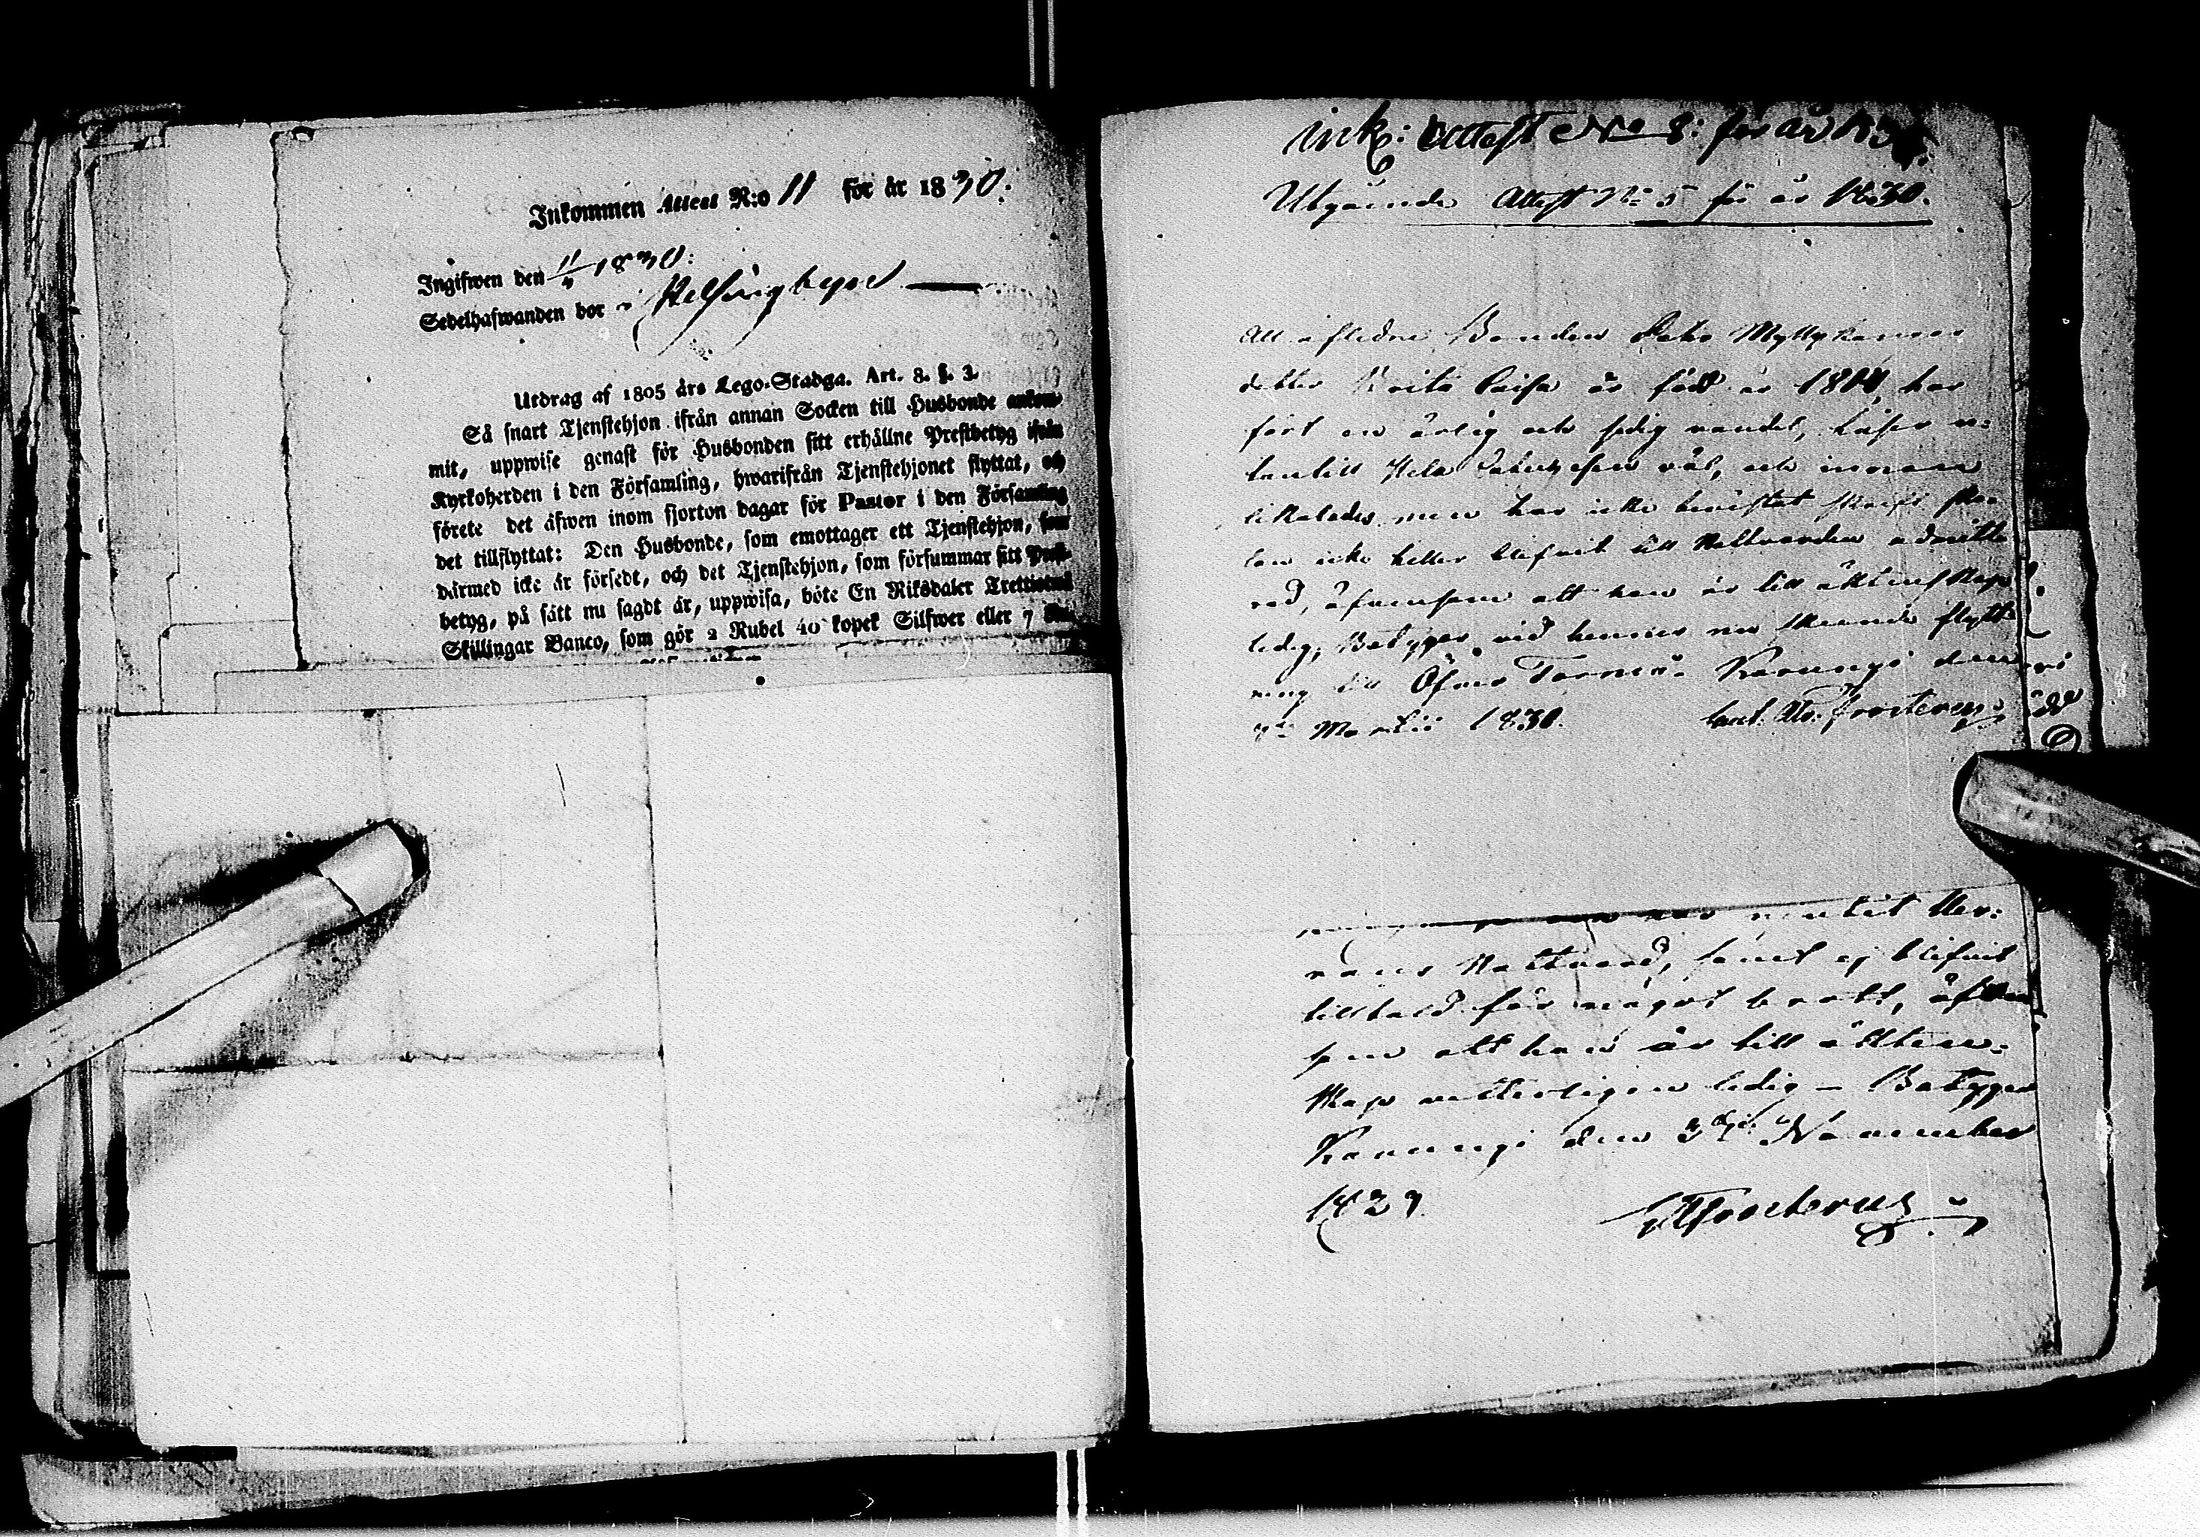 Inkommen Attest N:o 11 för år 1830.
Ingifwen den 11/4 1830.
Sedelhafwanden bor i Helsingbyed
Utdrag af 1805 års Lego-Stadga. Art. 8. §. 3.
Så snart Tjenstehjon ifrån annan Socken till Husbonde ankom-
mit, uppwise genast för Husbonden sitt erhållne Prestbetyg ifrån
Kyrkoherden i den Församling, hwarifrån Tjenstehjonet flyttat, och
förete det äfwen inom fjorton dagar för Pastor i den Församling
det tillflyttat: Den Husbonde, som emottager ett Tjenstehjon, som
därmed icke är försedt, och det Tjenstehjon, som försummar sitt Prest-
betyg, på sätt nu sagdt är, uppwisa, böte En Riksdaler Trettiotwå
Skillingar Banco, som gör 2 Rubel 40 kopek Silfwer eller 7
ink: Attest No 8: för år
Utgående Attest No 5 för år 1830.
Att aflidne Bonden Myllykangas
dotter Brita Caisa är född år har
fört en ärlig och sedig vandel, läser u-
tantill hela väl, och innan
likaledes, men har icke bevistat skrift
icke heller blifvit till Nattvarden admitte-
rad, äfvensom att hon är till äktenskap
ledig; Betygar vid hennes nu skeende flytt-
ning till Öfver Torneå. Karungi den
Martii 1830. Frosterus
nyttjat Her-
rans Nattvard, samt ej blifvit
tilltald för något brott, äfven
som att han är till äkten-
skap vetterligen ledig – Betygar
Karungi den 3die November
1829. Frosterus